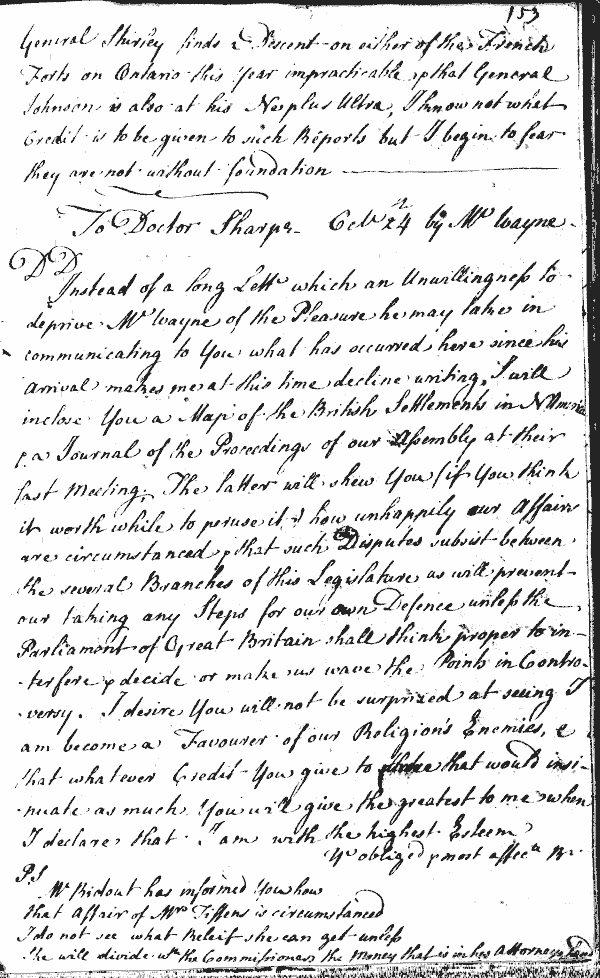 153
General Shirley finds a Descent on either of the French
Forts on Ontario this Year impracticable & that General
Johnson is also at his Ne plus Ultra, I know not what
Credit is to be given to such Reports but I begin to fear
they are not without foundation
To Doctor Sharpe Octr 24 by Mr Wayne
D D
Instead of a long Lettr which an Unwillingness to
deprive Mr Wayne of the Pleasure he may take in
communicating to You what has occurred here since his
Arrival makes me at this time decline writing, I will
inclose You a Map of the British Settlements in N America
& a Journal of the Proceedings of our Assembly at their
last Meeting. The latter will shew You (if You think
it worth while to peruse it) how unhappily our Affairs
are circumstanced & that such Disputes subsist between
the several Branches of this Legislature as will prevent
our taking any Steps for our own Defence unless the
Parliament of Great Britain shall think proper to in-
-terfere & decide or make us wave the Points in Contro-
-versy. I desire You will not be surprized at seeing I
am become a Favourer of our Religion's Enemies, &
that whatever Credit You give to that would insi-
-nuate as much You will give the greatest to me when
I declare that I am with the highest Esteem
Yr obliged & most affecte Br
P.S
Mr Ridout has informed You how
that Affair of Mrs Tiffens is circumstanced
I do not see what Releif she can get unless
She will divide wth the Commissioners the Money that is in her Attorneys hand